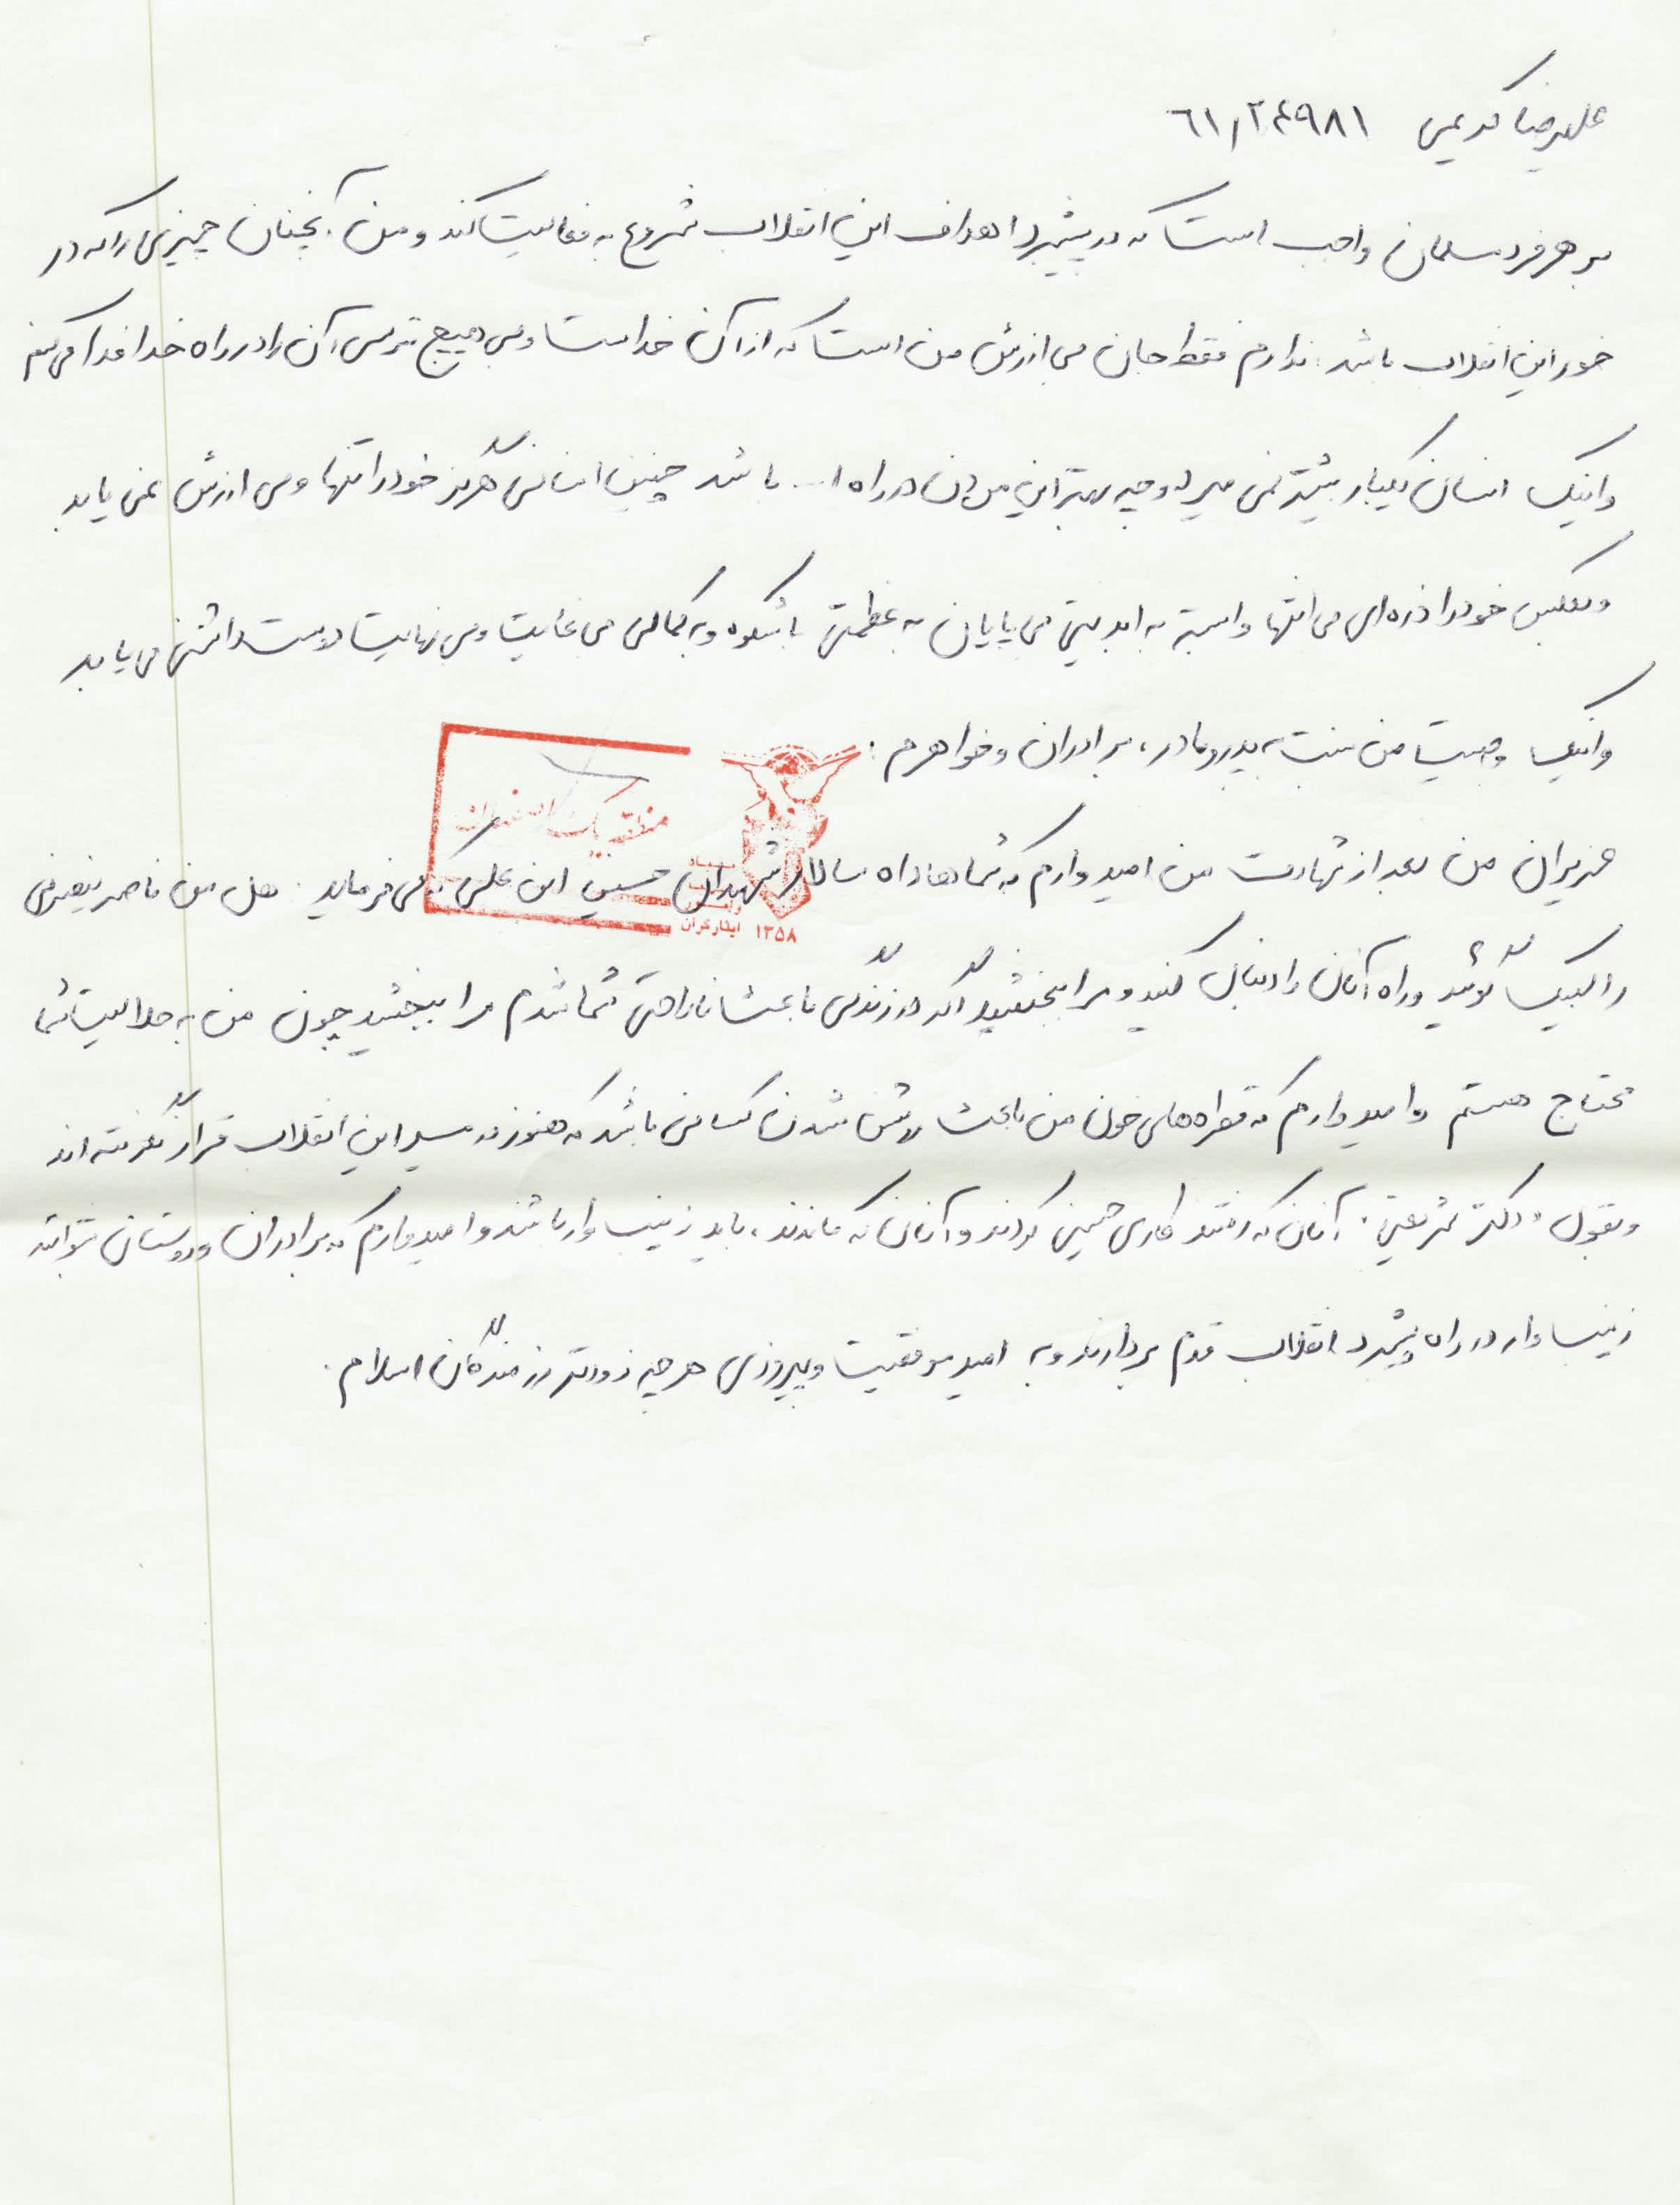 علیرضا کریمی ٦١/٢٤٩٨١
بر هر فرد مسلمان واجب است که در پیشبرد اهداف این انقلاب شروع به فعالیت کند و من آنچنان چیزی را که در
خور این انقلاب باشد ندارم فقط جان بی ارزش من است که از آن خداست و بی هیچ ترسی آن را در راه خدا فدا می کنم
و اینک انسان یکبار بیشتر نمی میرد و چه بهتر این مردن در راه ا... باشد چنین انسانی هرگز خود را تنها و بی ارزش نمی یابد
و بعکس خود را ذره ای بی انتها وابسته به ابدیتی بی پایان به عظمتی باشکوه و به کمالی بی غایت و بی نهایت دوست داشتنی می یابد
و اینک وصیت من نسبت به پدر و مادر، برادران و خواهرم :
عزیزان من بعد از شهادت من امیدوارم که شماها راه سالار شهیدان حسین ابن علی که می فرماید . هل من ناصر ینصرنی
را لبیک گوئید و راه آنان را دنبال کنید و مرا ببخشید اگر در زندگی باعث ناراحتی شما شدم مرا ببخشید چون من به حلالیت شما
محتاج هستم و امیدوارم که قطره های خون من باعث روشن شدن کسانی باشد که هنوز در مسیر این انقلاب قرار نگرفته اند
و بقول دکتر شریعتی . آنان که رفتند کاری حسینی کردند و آنان که ماندند، باید زینب وار باشند و امیدوارم که برادران و دوستان بتوانند
زینب وار در راه پیشبرد انقلاب قدم بردارند و به امید موفقیت و پیروزی هر چه زودتر رزمندگان اسلام .
منطقه یک
ایثارگران ١٣٥٨